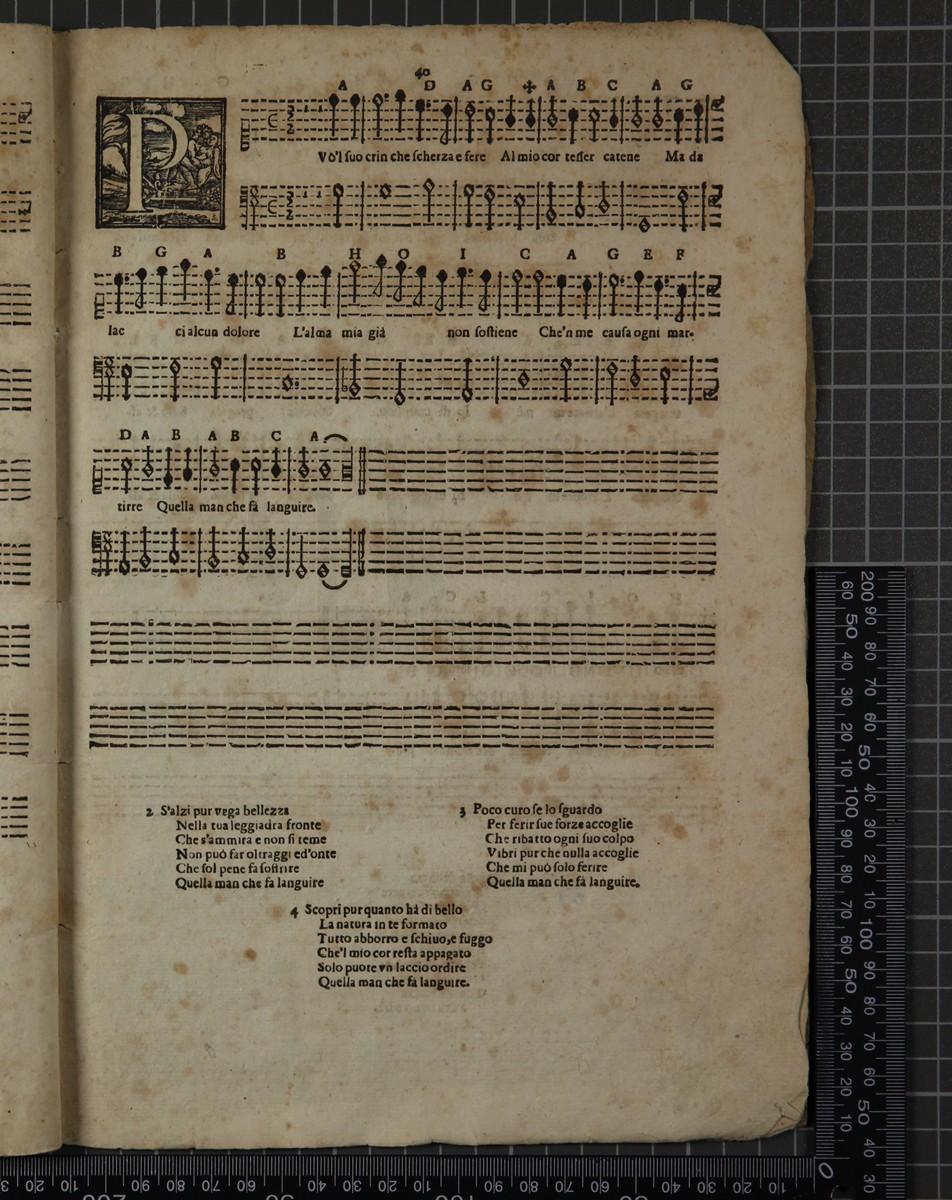 40
A D A G ✠ A B C A G
P
Vò'l ſuo crin che ſcherza e fere Al mio cor teſſer catene Ma da
B G A B H O I C A G E F
lac ci alcun dolore L'alma mia già non ſoſtiene Che'n me cauſa ogni mar-
D A B A B C A
tirre Quella man che fà languire.
2 S'alzi pur vega bellezza
Nella tua leggiadra fronte
Che s'ammira e non ſi teme
Non può far oltraggi ed'onte
Che ſol pene fa ſoffrire
Quella man che fa languire
3 Poco curo ſe lo ſguardo
Per ferir ſue forze accoglie
Che ribatto ogni ſuo colpo
Vibri pur che nulla accoglie
Che mi può ſolo ferire
Quella man che fà languire.
4 Scopri pur quanto hà di bello
La natura in te formato
Tutto abborro e ſchiuo, e fuggo
Che'l mio cor reſta appagato
Solo puote vn laccio ordire
Quella man che fà languire.